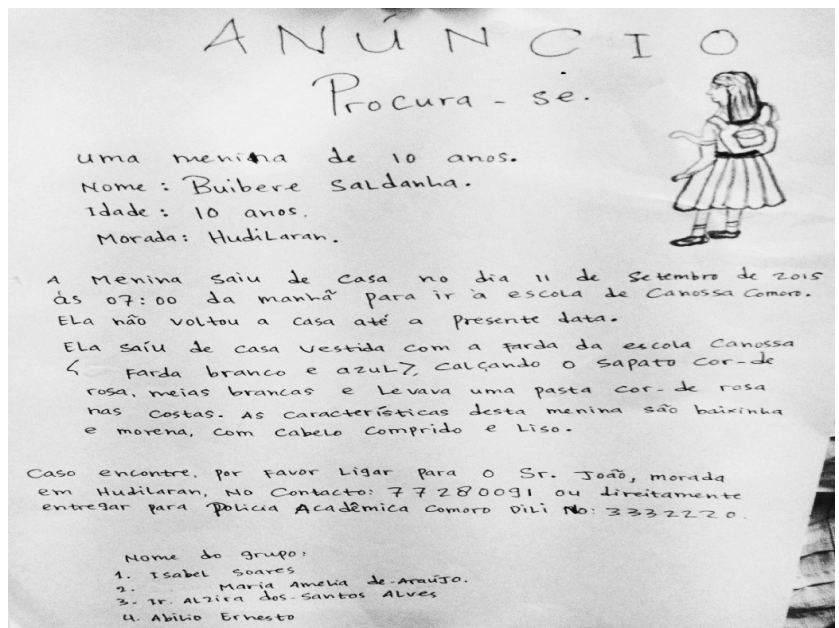 ANÚNCIO
Procura-se.
uma menina de 10 anos.
Nome: Buibere Saldanha.
Idade: 10 anos.
Morada: Hudilaran.
A menina saiu de casa no dia 11 de setembro de 2015
ás 07:00 da manhã para ir à escola de Canossa Comoro.
Ela não voltou a casa até a presente data.
Ela saíu de casa vestida com a farda da escola Canossa
< Farda branco e azul>, calçando o sapato cor-de
rosa, meias brancas e levava uma pasta cor-de rosa
nas costas. As características desta menina são baixinha
e morena, com cabelo comprido e liso.
Caso encontre, por favor ligar para o Sr. João, morada
em Hudilaran, No Contacto: 77280091 ou direitamente
entregar para Polícia Acadêmica Comoro Dili No: 3332220.
Nome do grupo:
1. Isabel Soares
2. Maria Amelia de-Araújo.
3. Ir. Alzira dos-Santos Alves
4. Abilio Ernesto